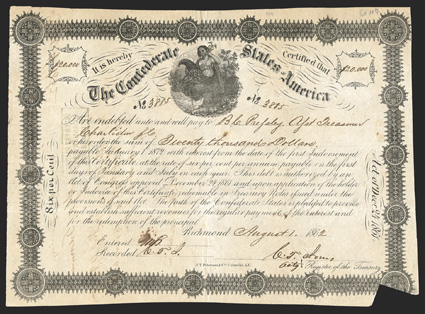 $20,000
It is hereby Certified that
$20,000
The Confederate States America
No 3885 No 3885
Are indebted unto and will pay to B. C. Pressley Asst Treasurer
Charleston
or his order the sum of Twenty thousand Dollars,
payable January 1 with interest from the date of the first Indorsement
of this Certificate at the rate of six per cent per annum payable on the first
day of January and July in each year. This debt is authorized by an
Act of Congress approved December 24 1861 and upon application of the holder
or Indorsee of this Certificate,
The faith of the Confederate States is pledged to provide
and establish sufficient revenues for the regular payment of the interest and
for the redemption of the principal.
Richmond August 1 1862
Entered
Recorded C. T. J.
Register of the Treasury
Six per Cent
Act of Dec 24 1861